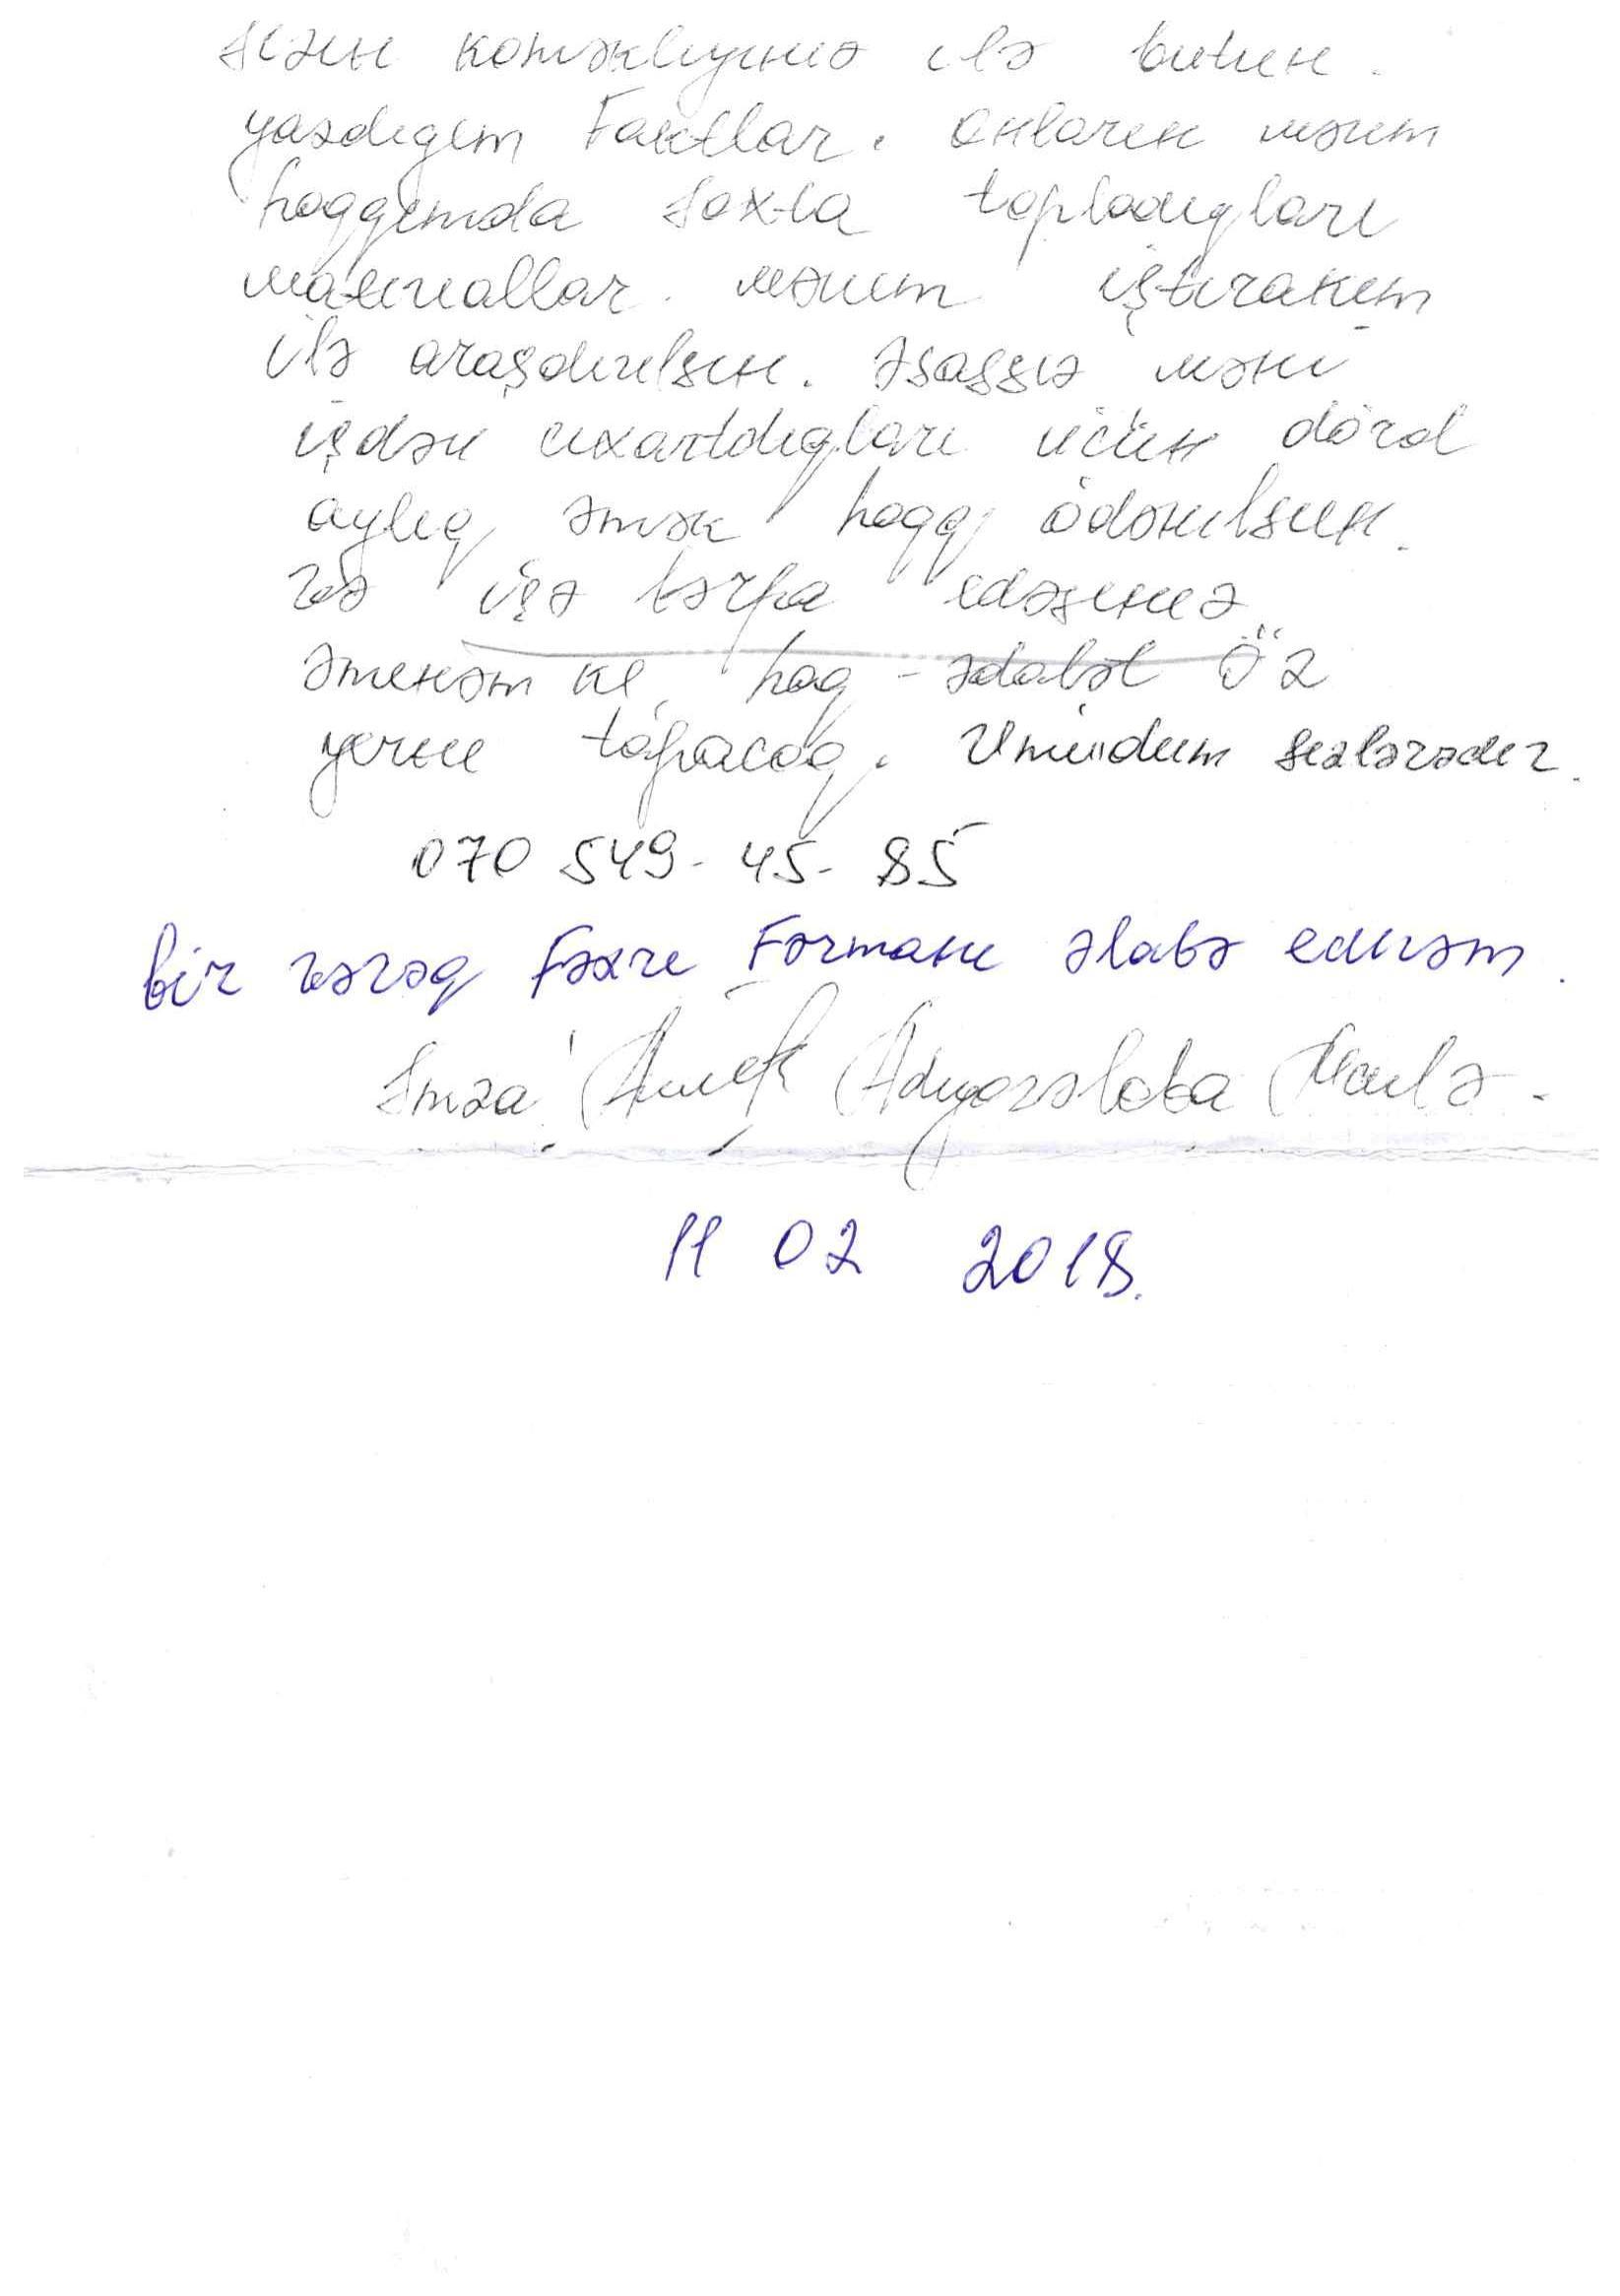 sizin köməkliyiniz ilə bütün
yazdığım Faktlar. Onların mənim
haqqımda saxta topladıqları
materiallar. mənim iştirakım
ilə araşdırılsın. Əsassız məni
işdən çıxartdıqları üçün dörd
aylıq əmək haqqı ödənilsin.
və işə bərpa edəsiniz
əminəm ki, haq-ədalət Öz
yerini tapacaq. Ümüdüm sizlərədir.
070 549-45-85
bir vərəq Fəxri Fərmanı əlavə edirəm.
İmza:
11 02 2018.